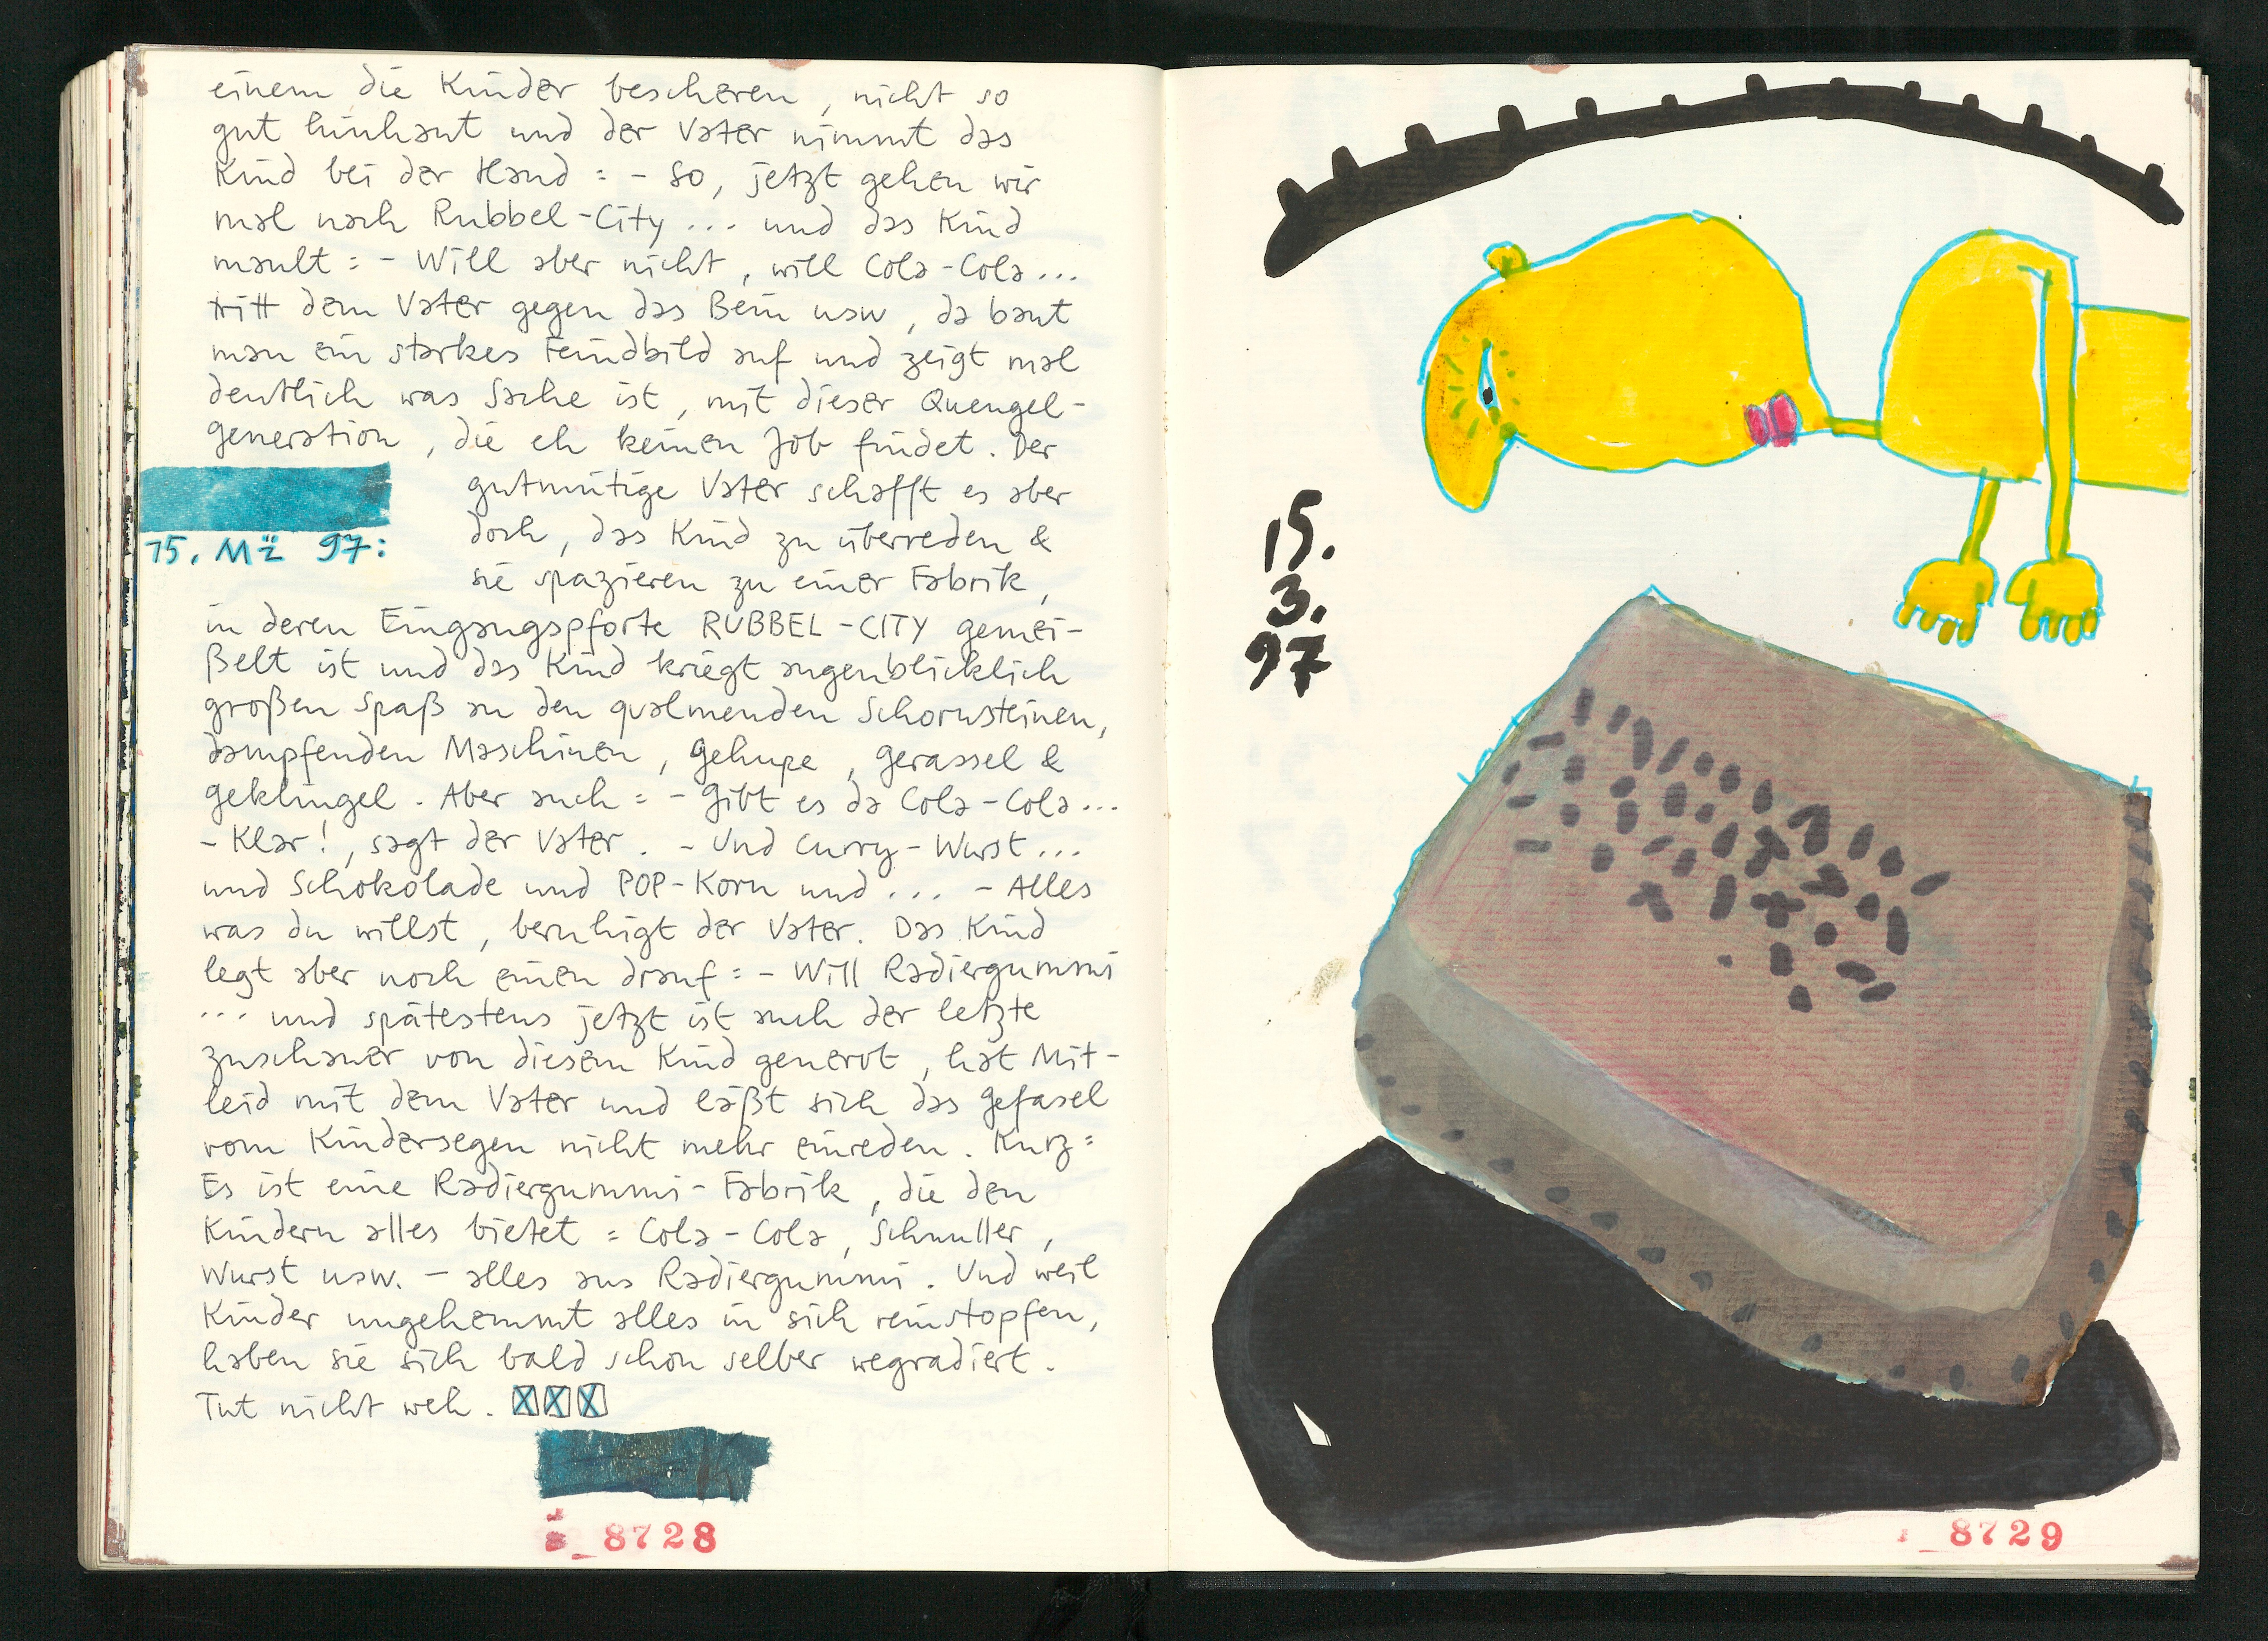 einem die Kinder bescheren, nicht so
gut hinhaut und der Vater nimmt das
Kind bei der Hand : - So, jetzt gehen wir
mal nach Rubbel-City ... und das Kind
mault : - Will aber nicht, will Cola-Cola ...
tritt dem Vater gegen das Bein usw, da baut
man ein starkes Feindbild auf und zeigt mal
deutlich was Sache ist, mit dieser Quengel-
generation, die eh keinen Job findet. Der
gutmütige Vater schafft es aber
doch, das Kind zu überreden &
15. Mz 97:
sie spazieren zu einer Fabrik,
in deren Eingangspforte RUBBEL-CITY gemei-
ßelt ist und das Kind kriegt augenblicklich
großen Spaß an den qualmenden Schornsteinen,
dampfenden Maschinen, Gehupe, Gerassel &
Geklingel. Aber auch : - Gibt es da Cola-Cola ...
- Klar!, sagt der Vater. - Und Curry-Wurst ...
und Schokolade und POP-Korn und ... - Alles
was du willst, beruhigt der Vater. Das Kind
legt aber noch einen drauf : - Will Radiergummi
... und spätestens jetzt ist auch der letzte
Zuschauer von diesem Kind genervt, hat Mit-
leid mit dem Vater und läßt sich das Gefasel
vom Kindersegen nicht mehr einreden. Kurz :
Es ist eine Radiergummi-Fabrik, die den
Kindern alles bietet : Cola-Cola, Schnuller,
Wurst usw. - alles aus Radiergummi. Und weil
Kinder ungehemmt alles in sich reinstopfen,
haben sie sich bald schon selber wegradiert.
Tut nicht weh. XXX
8728
15.
3.
97
8729